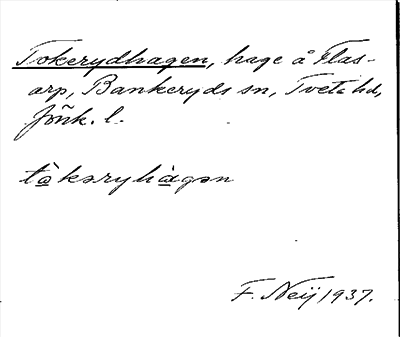 Tokerydhagen, hage å Flas-
arp, Bankeryds sn, Tveta hd,
Jönk. l.
tò̲kəryhà̲gən
F. Neij 1937.